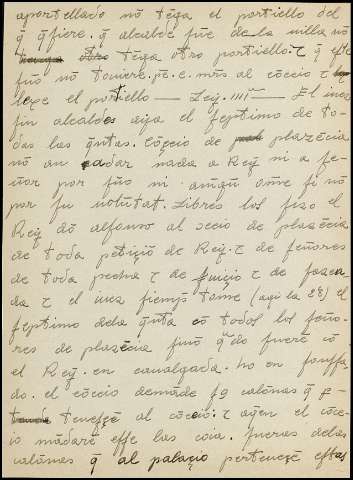 aportellado nõ tẽga el portiello del
q̃ q̃siere. q̃ alcalde fue de la uilla nõ
tẽga otro portiello. τ q̃ esto
fiziere nõ touiere. pẽ. c. mr̃s al cõceio τ
lexe el portiello — Ley. IIIIª — El iuez
sin alcaldes aya el septimo de to-
das las q̃ntas. Cõceio de plazẽcia
nõ an a dar nada a Rey ni a se-
ñor por fuero ni a nengũ ome si nõ
por su uolũtat. Libres los fizo el
Rey dõ alfonso al cõceio de plazẽcia
de toda petiçiõ de Rey. τ de señores
de toda pecha τ de fuiçio τ de fazen
da τ el iuez siempr tome (aquí la 2ª) el
septimo dela q̃nta cõ todos los seño-
res de plazẽcia sinõ q̃ndo fuere cõ
el Rey. en caualgada. ho en fonssa-
do. el cõceio demãde sus calõnas q̃ p-
tenesçẽ al cõceio: τ aq̃en el cõce-
io mãdare esse las coia. fueras delas
calõnas q̃ al palaçio pertenesçẽ estas